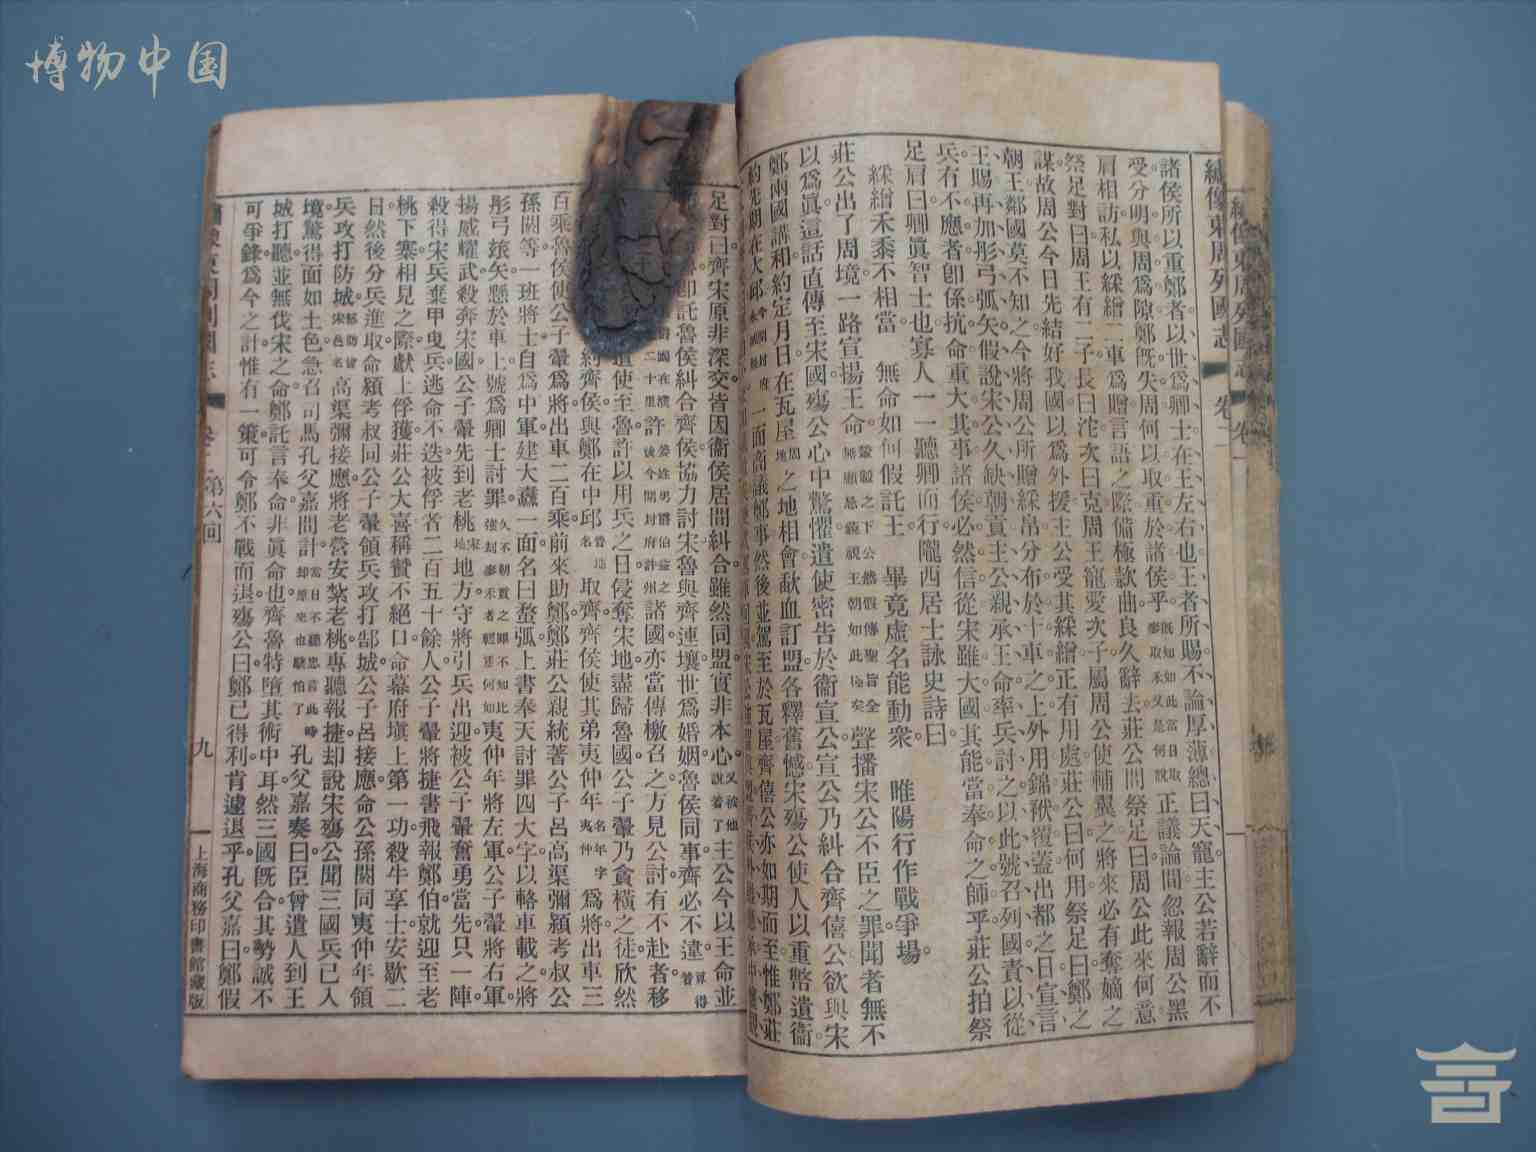 博物中国
繡像東周列國志 卷二
諸侯所以重鄭者以世爲卿士在王左右也王者所賜不論厚薄總曰天寵主公若辭而不
受分明與周爲隙鄭旣失周何以取重於諸侯乎旣知如此當日取麥取禾又是何說正議論間忽報周公黑
肩相訪私以綵繒二車爲贈言語之際備極款曲良久辭去莊公問祭足曰周公此來何意
祭足對曰周王有二子長曰沱次曰克周王寵愛次子屬周公使輔翼之將來必有奪嫡之
謀故周公今日先結好我國以爲外援主公受其綵繒正有用處莊公曰何用祭足曰鄭之
朝王鄰國莫不知之今將周公所贈綵帛分布於十車之上外用錦袱覆蓋出都之日宣言
王賜再加彤弓弧矢假說宋公久缺朝貢主公親承王命率兵討之以此號召列國責以從
兵有不應者卽係抗命重大其事諸侯必然信從宋雖大國其能當奉命之師乎莊公拍祭
足肩曰卿眞智士也寡人一一聽卿而行隴西居士詠史詩曰
綵繒禾黍不相當 無命如何假託王 畢竟虛名能動衆 睢陽行作戰爭場
莊公出了周境一路宣揚王命聲播宋公不臣之罪聞者無不
以爲眞這話直傳至宋國殤公心中驚懼遣使密告於衞宣公宣公乃糾合齊僖公欲與宋
鄭兩國講和約定月日在瓦屋周地之地相會歃血訂盟各釋舊憾宋殤公使人以重幣遺衞
約先期在犬邱一面商議鄭事然後並駕至於瓦屋齊僖公亦如期而至惟鄭莊
足對曰齊宋原非深交皆因衞侯居間糾合雖然同盟實非本心又被他說着了主公今以王命並
卽託魯侯糾合齊侯協力討宋魯與齊連壤世爲婚姻魯侯同事齊必不違算得着
許諸國亦當傳檄召之方見公討有不赴者移
遣使至魯許以用兵之日侵奪宋地盡歸魯國公子翬乃貪橫之徒欣然
約齊侯與鄭在中邱取齊齊侯使其弟夷仲年爲將出車三
百乘魯侯使公子翬爲將出車二百乘前來助鄭鄭莊公親統著公子呂高渠彌潁考叔公
孫閼等一班將士自爲中軍建大纛一面名曰蝥弧上書奉天討罪四大字以輅車載之將
彤弓弧矢懸於車上號爲卿士討罪夷仲年將左軍公子翬將右軍
揚威耀武殺奔宋國公子翬先到老桃宋地地方守將引兵出迎被公子翬奮勇當先只一陣
殺得宋兵棄甲曳兵逃命不迭被俘者二百五十餘人公子翬將捷書飛報鄭伯就迎至老
桃下寨相見之際獻上俘獲莊公大喜稱贊不絕口命幕府塡上第一功殺牛享士安歇二
日然後分兵進取命潁考叔同公子翬領兵攻打郜城公子呂接應命公孫閼同夷仲年領
兵攻打防城高渠彌接應將老營安紮老桃專聽報捷却說宋殤公聞三國兵已入
境驚得面如土色急召司馬孔父嘉問計孔父嘉奏曰臣曾遣人到王
城打聽並無伐宋之命鄭託言奉命非眞命也齊魯特墮其術中耳然三國旣合其勢誠不
可爭鋒爲今之計惟有一策可令鄭不戰而退殤公曰鄭已得利肯遽退乎孔父嘉曰鄭假
第六回 九 上海商務印書館藏版